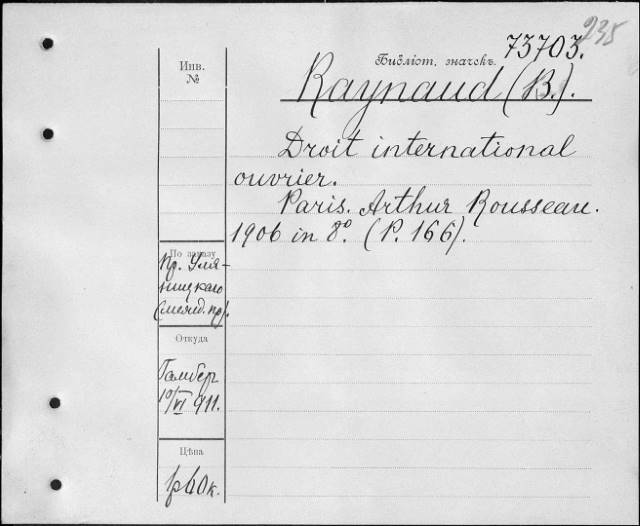 235
73703.
Библіот. значекъ.
Инв.
№
Raynaud (B.).
Droit international
ouvrier.
Paris. Arthur Rousseau.
1906 in 8º. (P. 166).
По заказу
Пр. Уля-
ницкаго
(межд. пр).
Откуда
Гамбер
10/VI 911.
Цѣна
1р60к.